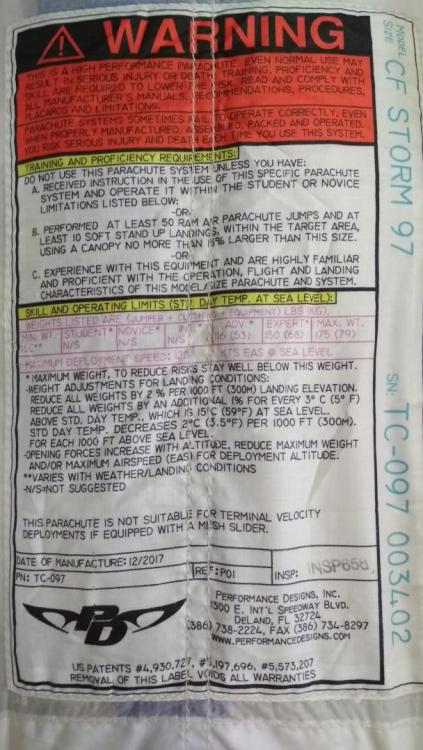 WARNING
THIS IS A HIGH PERFORMANCE PARACHUTE. EVEN NORMAL USE MAY
RESULT IN SERIOUS INJURY OR DEATH. TRAINING, PROFICIENCY AND
SKILL ARE REQUIRED TO LOWER THE RISK. READ AND COMPLY WITH
ALL MANUFACTURER'S MANUALS, RECOMMENDATIONS, PROCEDURES,
PLACARDS AND LIMITATIONS.
PARACHUTE SYSTEMS SOMETIMES FAIL TO OPERATE CORRECTLY, EVEN
WHEN PROPERLY MANUFACTURED, ASSEMBLED, PACKED AND OPERATED.
YOU RISK SERIOUS INJURY AND DEATH EACH TIME YOU USE THIS SYSTEM.
TRAINING AND PROFICIENCY REQUIREMENTS:
DO NOT USE THIS PARACHUTE SYSTEM UNLESS YOU HAVE:
A. RECEIVED INSTRUCTION IN THE USE OF THIS SPECIFIC PARACHUTE
SYSTEM AND OPERATE IT WITHIN THE STUDENT OR NOVICE
LIMITATIONS LISTED BELOW;
-OR-
B. PERFORMED AT LEAST 50 RAM AIR PARACHUTE JUMPS AND AT
LEAST 10 SOFT STAND UP LANDINGS, WITHIN THE TARGET AREA,
USING A CANOPY NO MORE THAN 15% LARGER THAN THIS SIZE.
-OR-
C. EXPERIENCE WITH THIS EQUIPMENT AND ARE HIGHLY FAMILIAR
AND PROFICIENT WITH THE OPERATION, FLIGHT AND LANDING
CHARACTERISTICS OF THIS MODEL/SIZE PARACHUTE AND SYSTEM.
SKILL AND OPERATING LIMITS (STD. DAY TEMP. AT SEA LEVEL):
WEIGHTS LISTED ARE (JUMPER + CLOTHING + EQUIPMENT) LBS (KG).
MIN. WT. STUDENT* NOVICE* ADV.* EXPERT* MAX. WT.
N/S N/S 116 (53) 150 (68) 175 (79)
*MAXIMUM DEPLOYMENT SPEED: KTS EAS @ SEA LEVEL
* MAXIMUM WEIGHT, TO REDUCE RISKS STAY WELL BELOW THIS WEIGHT.
-WEIGHT ADJUSTMENTS FOR LANDING CONDITIONS:
REDUCE ALL WEIGHTS BY 2 % PER 1000 FT (300M) LANDING ELEVATION.
REDUCE ALL WEIGHTS BY AN ADDITIONAL 1% FOR EVERY 3° C (5° F)
ABOVE STD. DAY TEMP. WHICH IS 15°C (59°F) AT SEA LEVEL.
STD DAY TEMP. DECREASES 2°C (3.5°F) PER 1000 FT (300M).
FOR EACH 1000 FT ABOVE SEA LEVEL.
-OPENING FORCES INCREASE WITH ALTITUDE, REDUCE MAXIMUM WEIGHT
AND/OR MAXIMUM AIRSPEED (EAS) FOR DEPLOYMENT ALTITUDE.
**VARIES WITH WEATHER/LANDING CONDITIONS
-N/S=NOT SUGGESTED
THIS PARACHUTE IS NOT SUITABLE FOR TERMINAL VELOCITY
DEPLOYMENTS IF EQUIPPED WITH A MESH SLIDER.
DATE OF MANUFACTURE: 12/2017
PN: TC-097
REF: P01
INSP: INSP656
PD
PERFORMANCE DESIGNS, INC.
1300 E. INT'L SPEEDWAY BLVD.
DELAND, FL 32724
(386) 738-2224, FAX (386) 734-8297
WWW.PERFORMANCEDESIGNS.COM
US PATENTS #4,930,727, #5,197,696, #5,573,207
REMOVAL OF THIS LABEL VOIDS ALL WARRANTIES
MODEL SIZE CF STORM 97
SN: TC-097 003402